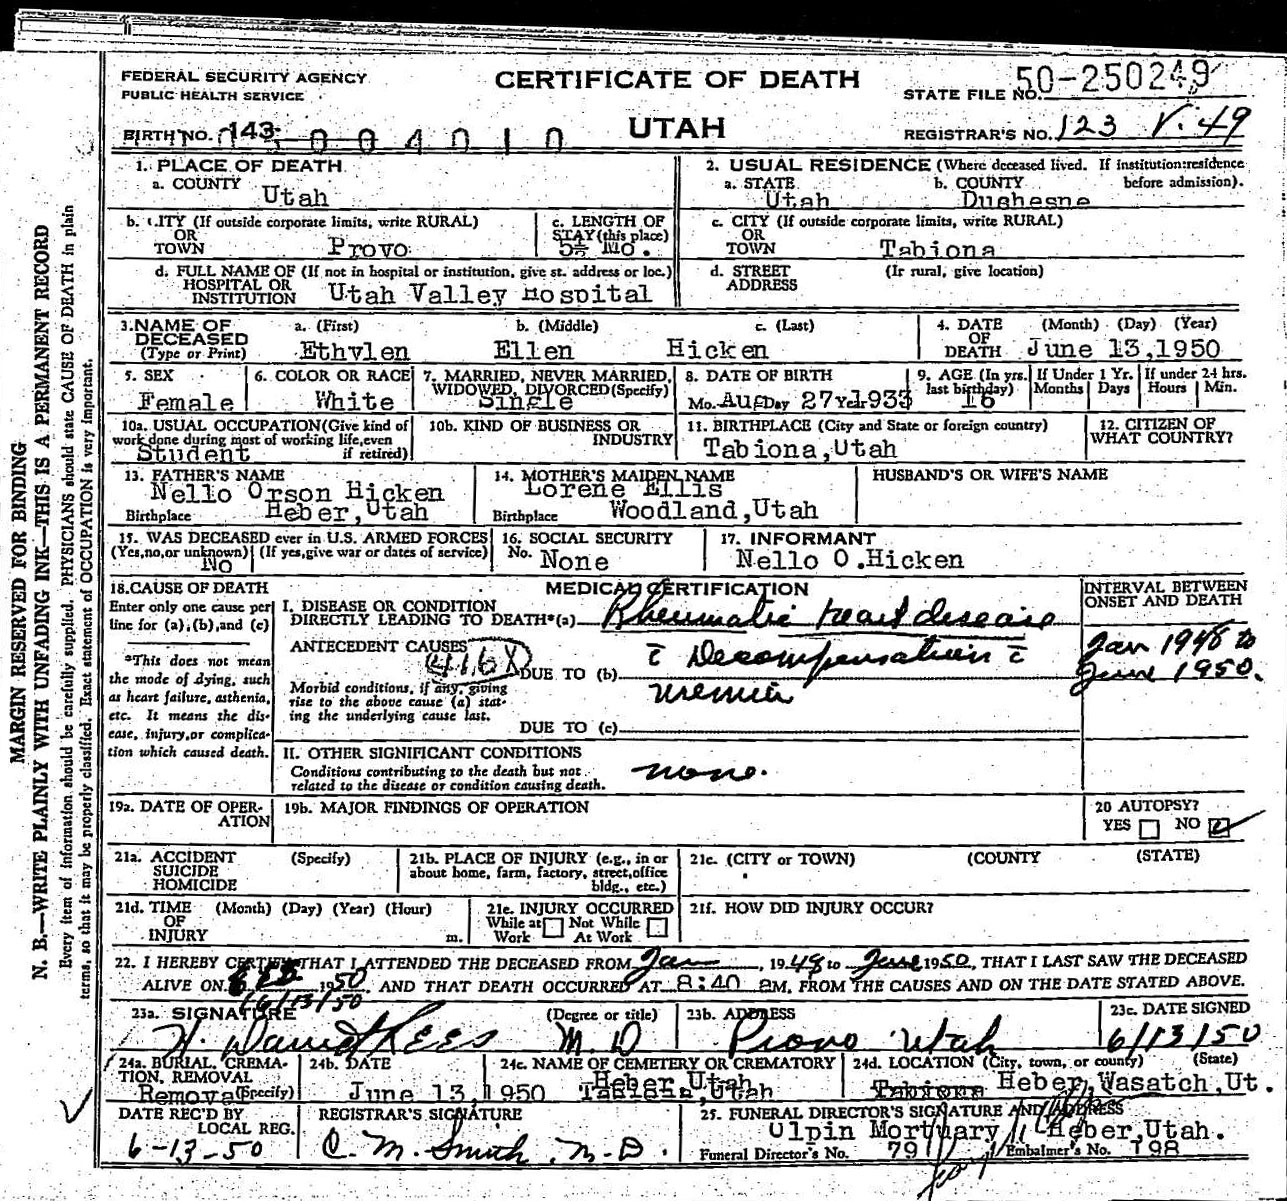 FEDERAL SECURITY AGENCY
PUBLIC HEALTH SERVICE
CERTIFICATE OF DEATH
STATE FILE NO. 50-250249
BIRTH NO. 143- 004010
UTAH
REGISTRAR'S NO. 123 V. 49
1. PLACE OF DEATH
a. COUNTY Utah
2. USUAL RESIDENCE (Where deceased lived. If institution: residence before admission).
a. STATE Utah b. COUNTY Duchesne
b. CITY (If outside corporate limits, write RURAL) OR TOWN Provo
c. LENGTH OF STAY (this place) 5½ Mo.
c. CITY (If outside corporate limits, write RURAL) OR TOWN Tabiona
d. FULL NAME OF (If not in hospital or institution, give st. address or loc.) HOSPITAL OR INSTITUTION Utah Valley Hospital
d. STREET ADDRESS (If rural, give location)
3. NAME OF DECEASED (Type or Print)
a. (First) Ethylen b. (Middle) Ellen c. (Last) Hicken
4. DATE OF DEATH (Month) (Day) (Year) June 13,1950
5. SEX Female
6. COLOR OR RACE White
7. MARRIED, NEVER MARRIED, WIDOWED, DIVORCED (Specify) Single
8. DATE OF BIRTH Mo. Aug Day 27 Year 1933
9. AGE (In yrs. last birthday) 16 If Under 1 Yr. Months Days If under 24 hrs. Hours Min.
10a. USUAL OCCUPATION (Give kind of work done during most of working life, even if retired) Student
10b. KIND OF BUSINESS OR INDUSTRY
11. BIRTHPLACE (City and State or foreign country) Tabiona,Utah
12. CITIZEN OF WHAT COUNTRY?
13. FATHER'S NAME Nello Orson Hicken
Birthplace Heber,Utah
14. MOTHER'S MAIDEN NAME Lorene Ellis
Birthplace Woodland,Utah
HUSBAND'S OR WIFE'S NAME
15. WAS DECEASED ever in U.S. ARMED FORCES (Yes, no, or unknown) (If yes, give war or dates of service) No
16. SOCIAL SECURITY No. None
17. INFORMANT Nello O.Hicken
18. CAUSE OF DEATH
Enter only one cause per line for (a), (b), and (c)
*This does not mean the mode of dying, such as heart failure, asthenia, etc. It means the disease, injury, or complication which caused death.
MEDICAL CERTIFICATION
INTERVAL BETWEEN ONSET AND DEATH
I. DISEASE OR CONDITION DIRECTLY LEADING TO DEATH*(a) Rheumatic heart disease
ANTECEDENT CAUSES 416X
c̄ Decompensation c̄
Jan 1948 to June 1950.
DUE TO (b) uremia
Morbid conditions, if any, giving rise to the above cause (a) stating the underlying cause last.
DUE TO (c)
II. OTHER SIGNIFICANT CONDITIONS
Conditions contributing to the death but not related to the disease or condition causing death. none.
19a. DATE OF OPERATION
19b. MAJOR FINDINGS OF OPERATION
20 AUTOPSY? YES NO
21a. ACCIDENT SUICIDE HOMICIDE (Specify)
21b. PLACE OF INJURY (e.g., in or about home, farm, factory, street, office bldg., etc.)
21c. (CITY or TOWN) (COUNTY) (STATE)
21d. TIME OF INJURY (Month) (Day) (Year) (Hour) m.
21e. INJURY OCCURRED While at Work Not While At Work
21f. HOW DID INJURY OCCUR?
22. I HEREBY CERTIFY THAT I ATTENDED THE DECEASED FROM Jan, 1948 to June 1950, THAT I LAST SAW THE DECEASED
ALIVE ON 6/13/50 1950, AND THAT DEATH OCCURRED AT 8:40 am. FROM THE CAUSES AND ON THE DATE STATED ABOVE.
23a. SIGNATURE (Degree or title) M D
23b. ADDRESS Provo Utah
23c. DATE SIGNED 6/13/50
24a. BURIAL, CREMATION, REMOVAL (Specify) Removal
24b. DATE June 13,1950
24c. NAME OF CEMETERY OR CREMATORY Heber,Utah
24d. LOCATION (City, town, or county) (State) Tabiona Heber, Wasatch,Ut.
DATE REC'D BY LOCAL REG. 6-13-50
REGISTRAR'S SIGNATURE C. M. Smith, M.D.
25. FUNERAL DIRECTOR'S SIGNATURE AND ADDRESS Olpin Mortuary Heber,Utah.
Funeral Director's No. 791 Embalmer's No. 198
MARGIN RESERVED FOR BINDING
N. B.—WRITE PLAINLY WITH UNFADING INK—THIS IS A PERMANENT RECORD
Every item of information should be carefully supplied. PHYSICIANS should state CAUSE OF DEATH in plain
terms, so that it may be properly classified. Exact statement of OCCUPATION is very important.